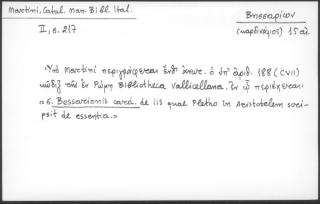 Martini, Catal. Man. Bibl. Ital.
II, σ. 217
Βησσαρίων
(καρδινάλιος) 15 αἰ.
Ὑπὸ Martini περιγράφεται ἔνθ' ἀνωτ. ὁ ὑπ' ἀριθ. 188 (CVII)
κῶδιξ τῆς ἐν Ρώμῃ Bibliotheca Vallicellana, ἐν ᾧ περιέχεται:
« 6. Bessarionis card. de iis quae Pletho in Aristotelem scri-
psit de essentia.»